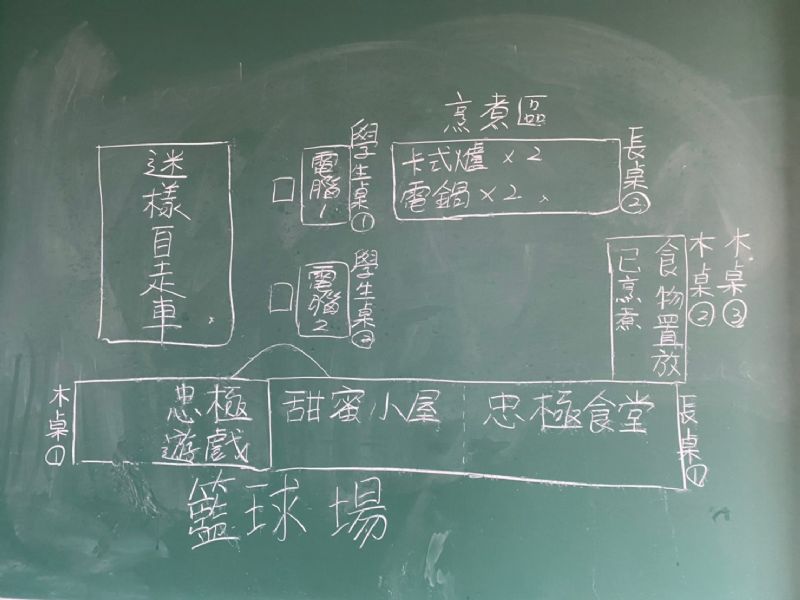 烹煮區
迷樣自走車
電腦1
學生桌①
卡式爐×2
電鍋×2
長桌②
電腦2
學生桌②
食物置放
已烹煮
木桌②
木桌③
木桌①
忠極
遊戲
甜蜜小屋
忠極食堂
長桌①
籃球場